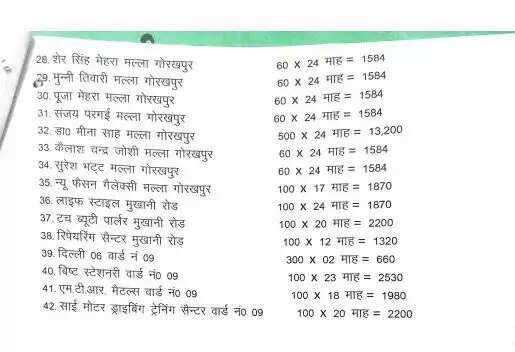 28. शेर सिंह मेहरा मल्ला गोरखपुर 60 X 24 माह = 1584
29. मुन्नी तिवारी मल्ला गोरखपुर 60 X 24 माह = 1584
30. पूजा मेहरा मल्ला गोरखपुर 60 X 24 माह = 1584
31. संजय परगई मल्ला गोरखपुर 60 X 24 माह = 1584
32. डा0 मीना साह मल्ला गोरखपुर 500 X 24 माह = 13,200
33. कैलाश चन्द्र जोशी मल्ला गोरखपुर 60 X 24 माह = 1584
34. सुरेश भट्ट मल्ला गोरखपुर 60 X 24 माह = 1584
35. न्यू फैसन गैलेक्सी मल्ला गोरखपुर 100 X 17 माह = 1870
36. लाइफ स्टाइल मुखानी रोड 100 X 24 माह = 1870
37. टच ब्यूटी पार्लर मुखानी रोड 100 X 20 माह = 2200
38. रिपेयरिंग सैन्टर मुखानी रोड 100 X 12 माह = 1320
39. दिल्ली 06 वार्ड नं 09 300 X 02 माह = 660
40. बिष्ट स्टेशनरी वार्ड नं0 09 100 X 23 माह = 2530
41. एम.टी.आर. मैटल्स वार्ड नं0 09 100 X 18 माह = 1980
42. साई मोटर ड्राइबिंग ट्रेनिंग सैन्टर वार्ड नं0 09 100 X 20 माह = 2200